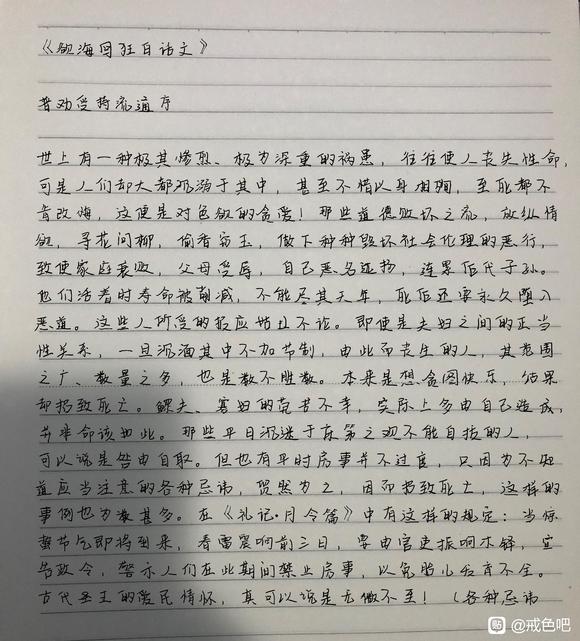 《欲海回狂白话文》
普劝受持流通序
世上有一种极其惨烈、极为深重的祸患，往往使人丧失性命，
可是人们却大都沉溺于其中，甚至不惜以身相殉，至死都不
肯改悔，这便是对色欲的贪爱！那些道德败坏之流，放纵情
欲，寻花问柳，偷香窃玉，做下种种毁坏社会伦理的恶行，
致使家庭衰败，父母受辱，自己恶名远扬，连累后代子孙。
他们活着时寿命被削减，不能尽其天年，死后还要永久堕入
恶道。这些人所受的报应姑且不论。即使是夫妇之间的正当
性关系，一旦沉湎其中不加节制，由此而丧生的人，其范围
之广、数量之多，也是数不胜数。本来是想贪图快乐，结果
却招致死亡。鳏夫、寡妇的苦不幸，实际上多由自己造成，
并非命该如此。那些平日沉迷于床笫之欢不能自拔的人，
可以说是咎由自取。但也有平时房事并不过度，只因为不知
道应当注意的各种忌讳，贸然为之，因而招致死亡，这样的
事例也为数甚多。在《礼记·月令篇》中有这样的规定：当惊
蛰节气即将到来，看雷震响前三日，要由官吏振响木铎，宣
告政令，警示人们在此期间禁止房事，以免胎儿发育不全。
古代圣王的爱民情怀，真可以说是无微不至！（各种忌讳
贴 @戒色吧